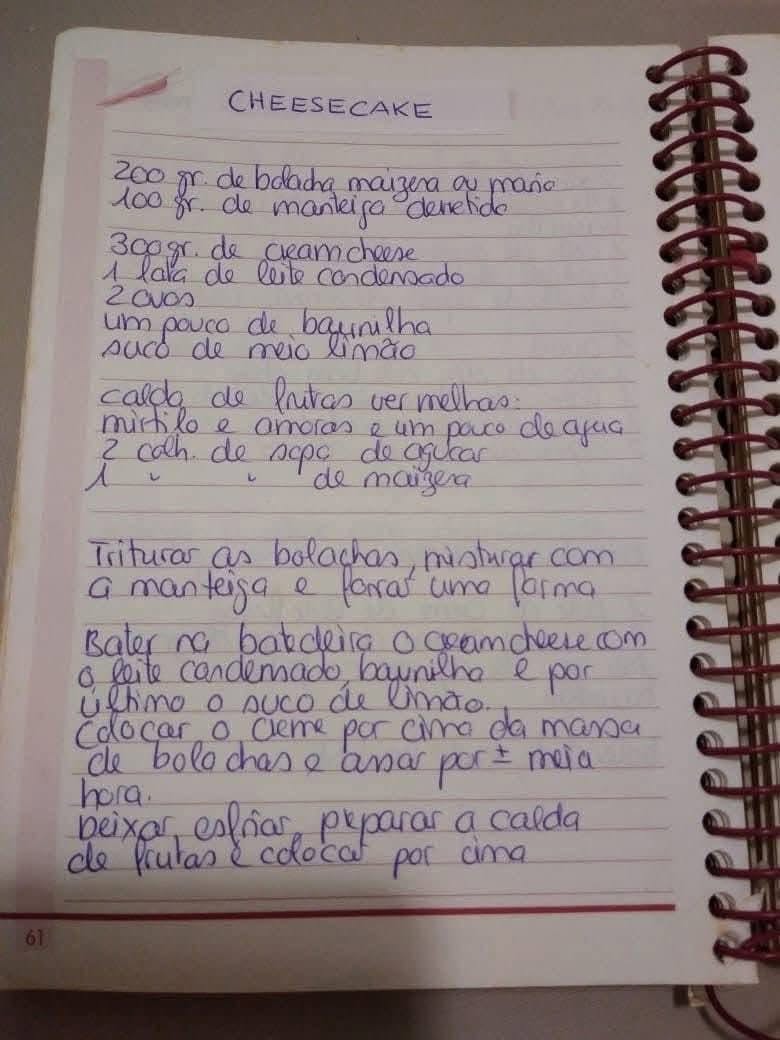 CHEESECAKE
200 gr. de bolacha maizena ou maria
100 gr. de manteiga derretida
300 gr. de creamcheese
1 lata de leite condensado
2 ovos
um pouco de baunilha
suco de meio limão
calda de frutas vermelhas:
mirtilo e amoras e um pouco de agua
2 colh. de sopa de açucar
1 " " de maizena
Triturar as bolachas, misturar com
a manteiga e forrar uma forma
Bater na batedeira o creamcheese com
o leite condensado, baunilha e por
último o suco de limão.
Colocar o creme por cima da massa
de bolachas e assar por ± meia
hora.
Deixar esfriar, preparar a calda
de frutas e colocar por cima
61